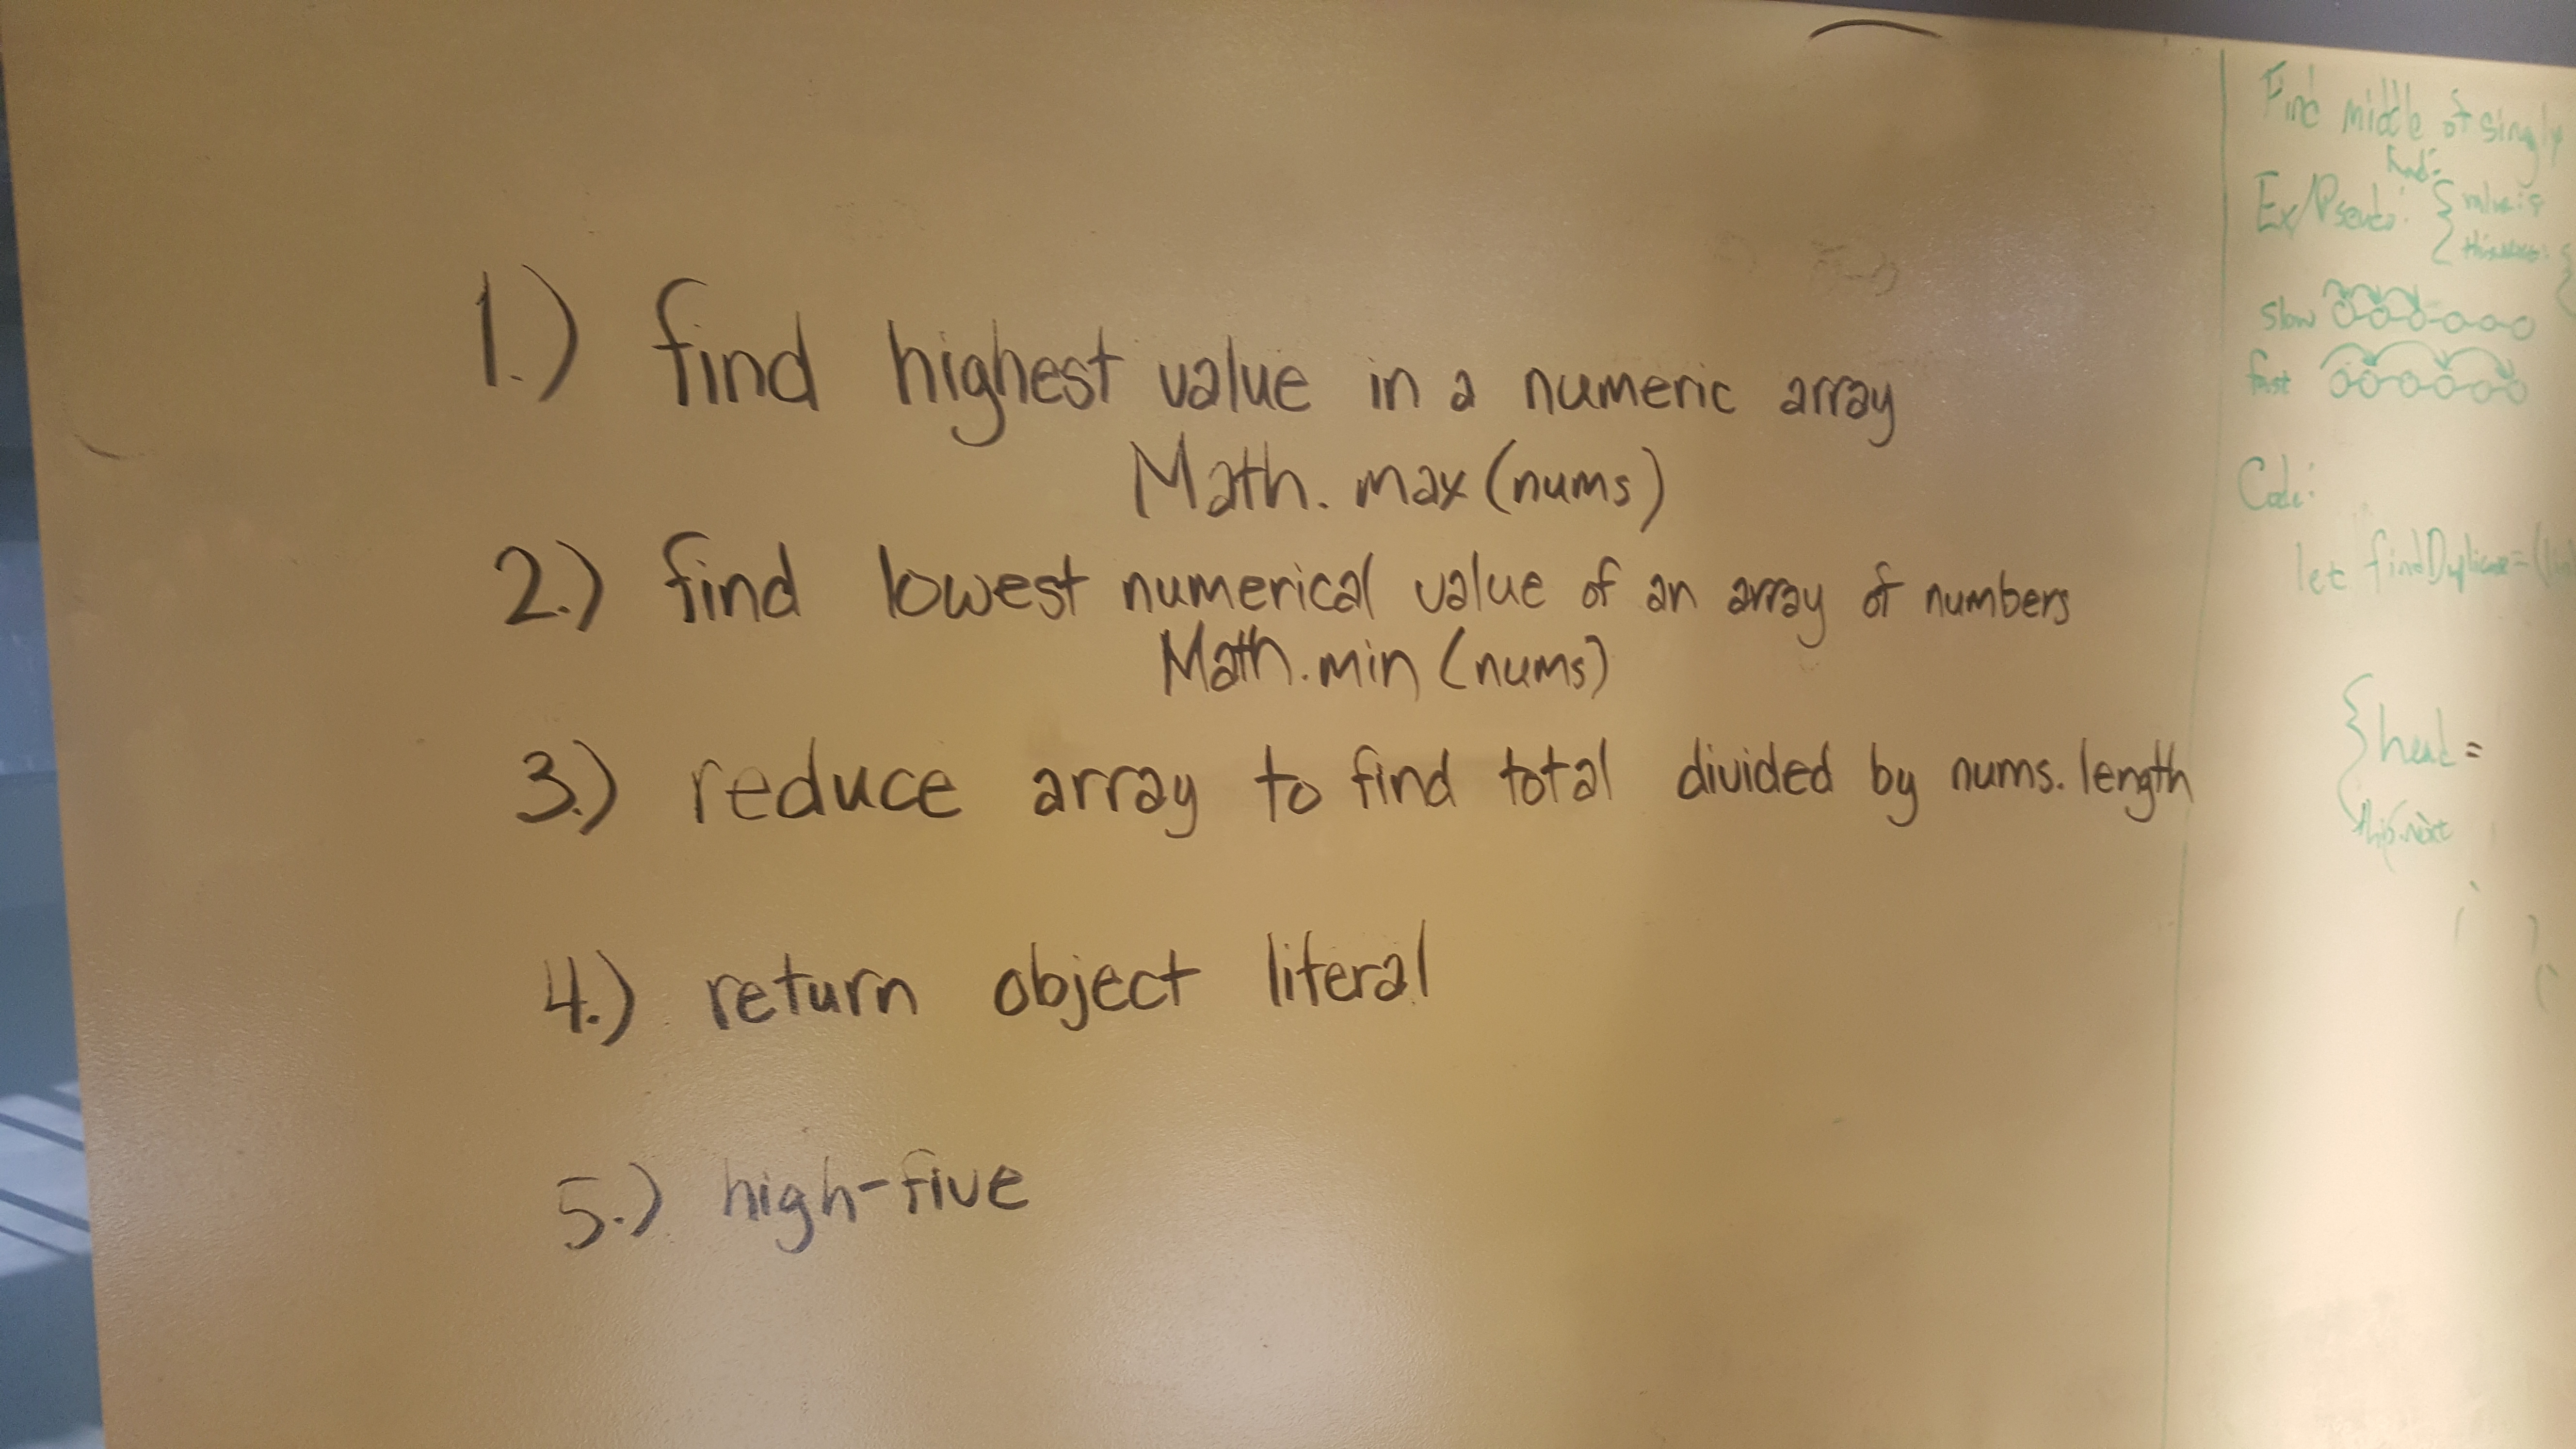 1.) find highest value in a numeric array
Math.max(nums)
2.) find lowest numerical value of an array of numbers
Math.min(nums)
3.) reduce array to find total divided by nums.length
4.) return object literal
5.) high-five
Find middle of singly
Ex/Pseudo:
slow
fast
Code:
let
{head =
this.next